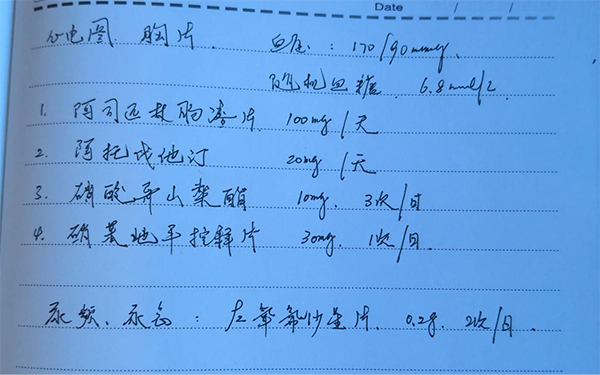 Date / /
心电图、胸片、 血压：170/90mmHg、
随机血糖、6.8mmol/L
1. 阿司匹林肠溶片 100mg/天
2. 阿托伐他汀 20mg/天
3. 硝酸异山梨酯 10mg、3次/日
4. 硝苯地平控释片 30mg、1次/日、
尿频、尿急：左氧氟沙星片、0.2g、2次/日、